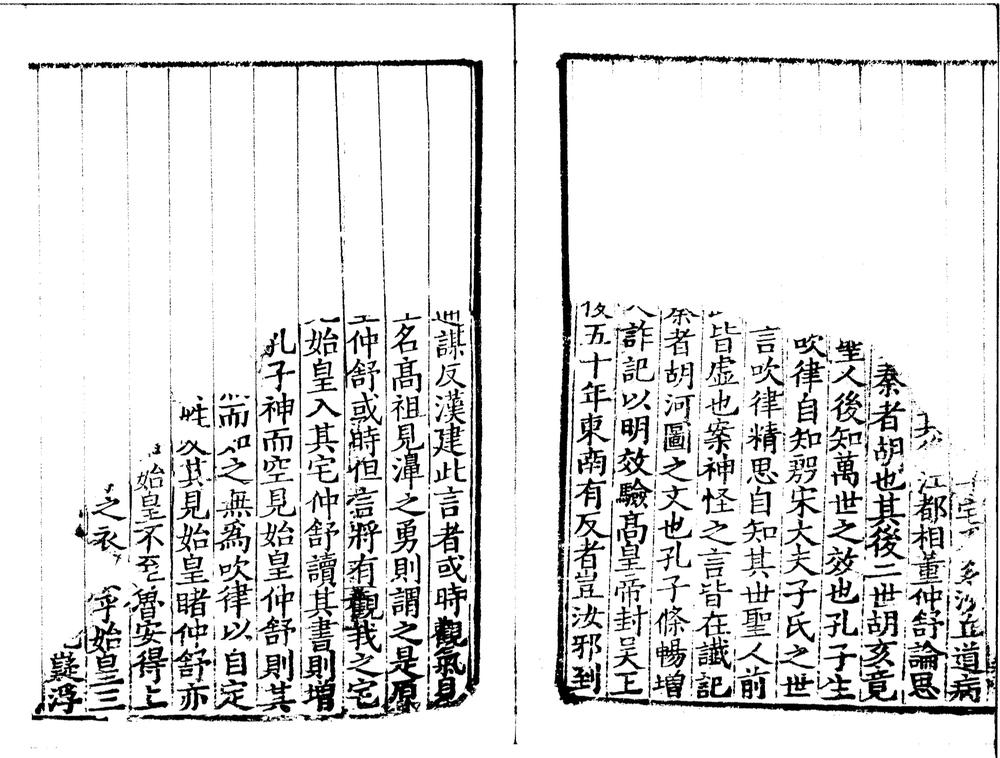 丘道病
江都相董仲舒論思
秦者胡也其後二世胡亥竟
聖人後知萬世之效也孔子生
吹律自知殷宋大夫子氏之世
言吹律精思自知其世聖人前
皆虛也案神怪之言皆在讖記
秦者胡河圖之文也孔子條暢增
詐記以明效驗高皇帝封吳王
後五十年東南有反者豈汝邪到
謀反漢建此言者或時觀氣見
名高祖見濞之勇則謂之是原
仲舒或時但言將有觀我之宅
始皇入其宅仲舒讀其書則增
孔子神而空見始皇仲舒則其
而知之無爲吹律以自定
姓其見始皇睹仲舒亦
始皇不至魯安得上
之衣 始皇三
疑浮